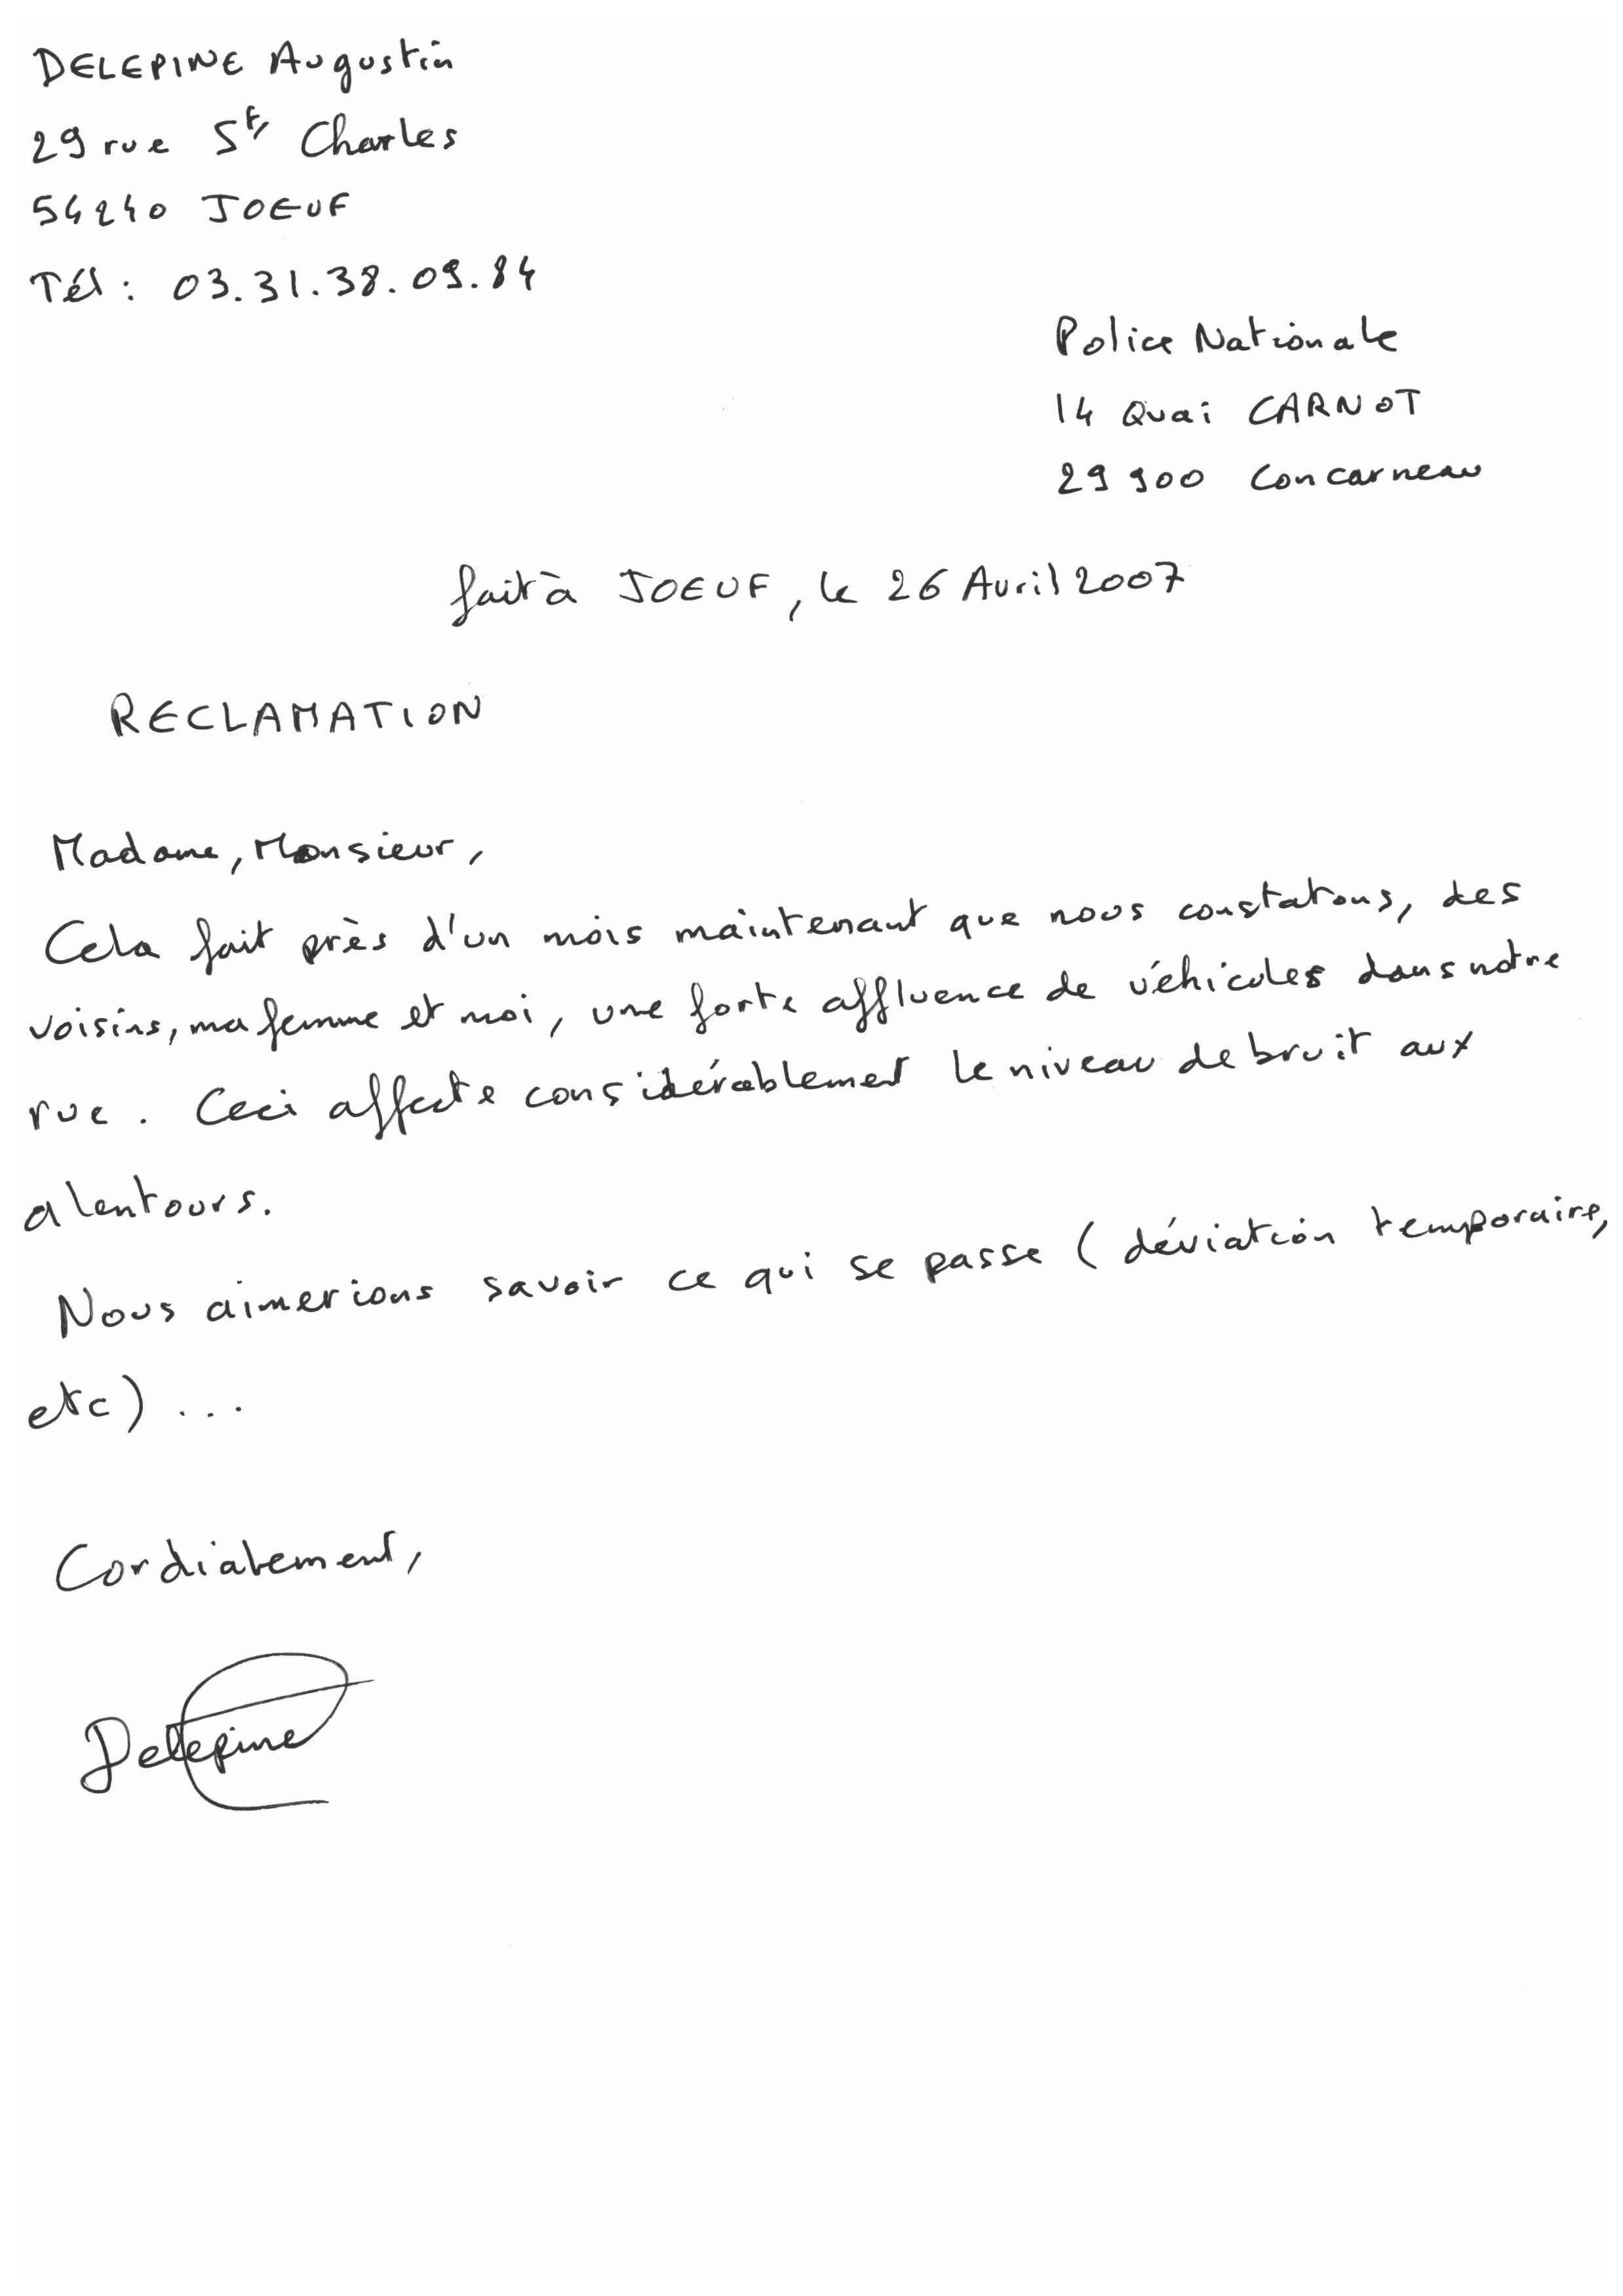 DELEPINE Augustin
29 rue St Charles
54240 JOEUF
Tél : 03.31.38.09.84
Police Nationale
14 Quai CARNOT
29900 Concarneau
fait à JOEUF, le 26 Avril 2007
RECLAMATION
Madame, Monsieur,
Cela fait près d'un mois maintenant que nous constatons, des
voisins, ma femme et moi, une forte affluence de véhicules dans notre
rue. Ceci affecte considérablement le niveau de bruit aux
alentours.
Nous aimerions savoir ce qui se passe (déviation temporaire,
etc) ...
Cordialement,
Delepine